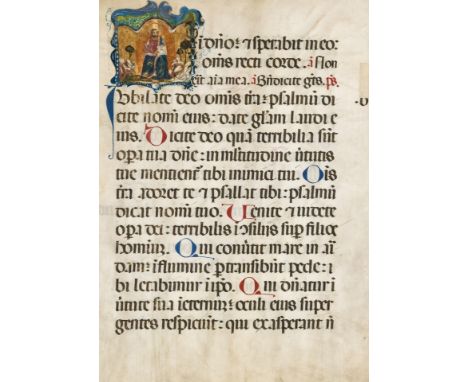 i dn̄o: ⁊ sperabit in eo:
om̄s recti corde. ā
mea. ā Bn̄dicite gn̄s. ps̄.
ubilate deo om̄is tr̄a: psalmū di
cite nomī eius: date gl̄am laudi e
ius. Dicite deo quā terribilia sūt
opera tua dn̄e: in multitudine ūtutis
tue mentient᷒ tibi inimici tui. Om̄is
tr̄a adoret te ⁊ psallat tibi: psalmū
dicat nomī tuo. Uenite ⁊ uidete
opera dei: terribilis ī cōsiliis sup̄ filios
hominū. Qui conūtit mare in ari
dam: ī flumine p̄transibūt pede: i
bi letabimur ī ip̄o. Qui dn̄atur ī
ūtute sua ī eternū: oculi eius super
gentes respiciūt: qui exasperant n̄